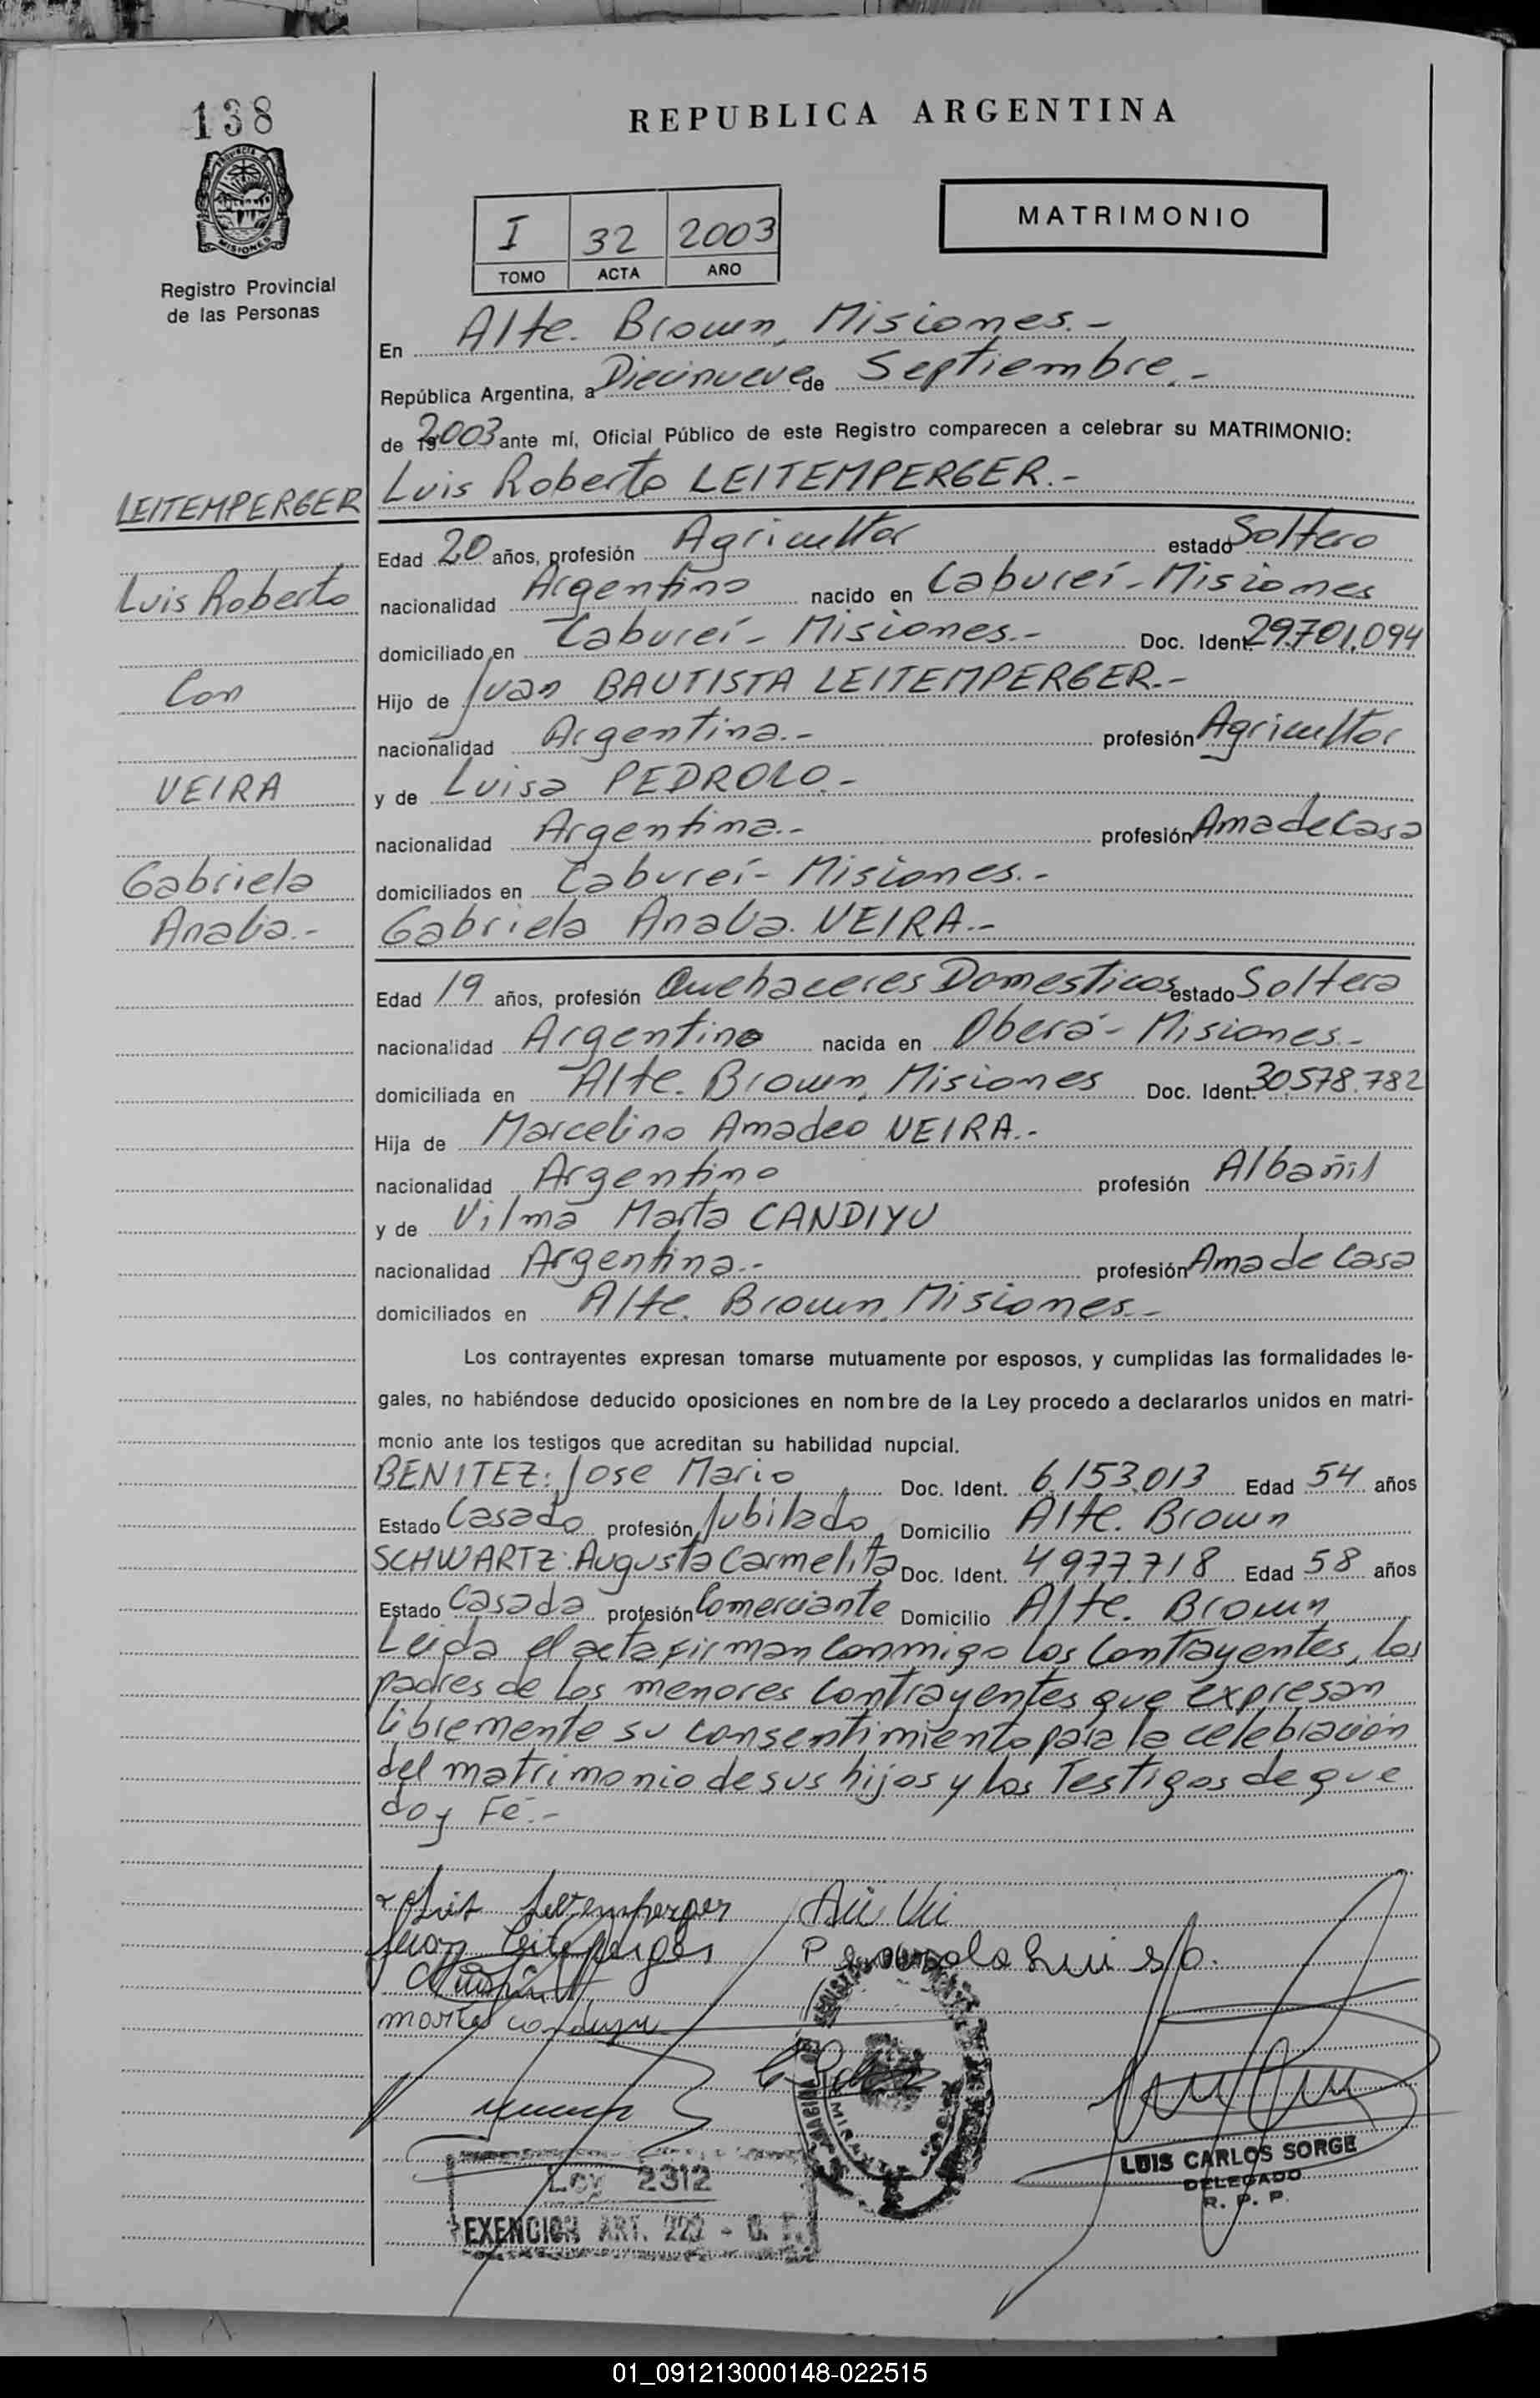 138
REPUBLICA ARGENTINA
PROVINCIA DE
MISIONES
Registro Provincial
de las Personas
I 32 2003
TOMO ACTA AÑO
MATRIMONIO
En Alte. Brown, Misiones.-
República Argentina, a Diecinueve de Septiembre.-
de 2003 ante mí, Oficial Público de este Registro comparecen a celebrar su MATRIMONIO:
LEITEMPERGER
Luis Roberto
Con
VEIRA
Gabriela
Analia.-
Luis Roberto LEITEMPERGER.-
Edad 20 años, profesión Agricultor estado Soltero
nacionalidad Argentino nacido en Cabureí - Misiones
domiciliado en Cabureí - Misiones.- Doc. Ident. 29.701.094
Hijo de Juan BAUTISTA LEITEMPERGER.-
nacionalidad Argentina.- profesión Agricultor
y de Luisa PEDROLO.-
nacionalidad Argentina.- profesión Ama de Casa
domiciliados en Cabureí - Misiones.-
Gabriela Analia VEIRA.-
Edad 19 años, profesión Quehaceres Domesticos estado Soltera
nacionalidad Argentina nacida en Oberá - Misiones.-
domiciliada en Alte. Brown, Misiones Doc. Ident. 30.578.782
Hija de Marcelino Amadeo VEIRA.-
nacionalidad Argentino profesión Albañil
y de Vilma Marta CANDIYU
nacionalidad Argentina.- profesión Ama de Casa
domiciliados en Alte. Brown, Misiones.-
Los contrayentes expresan tomarse mutuamente por esposos, y cumplidas las formalidades le-
gales, no habiéndose deducido oposiciones en nombre de la Ley procedo a declararlos unidos en matri-
monio ante los testigos que acreditan su habilidad nupcial.
BENITEZ: Jose Mario Doc. Ident. 6.153.013 Edad 54 años
Estado Casado profesión Jubilado Domicilio Alte. Brown
SCHWARTZ: Augusta Carmelita Doc. Ident. 4977.718 Edad 58 años
Estado Casada profesión Comerciante Domicilio Alte. Brown
Leida el acta firman conmigo los Contrayentes, los
padres de los menores Contrayentes que expresan
libremente su consentimiento para la celebración
del matrimonio de sus hijos y los Testigos de que
doy Fé.-
Luis Leitemperger
Juan Leitemperger
Pedrolo Luisa.
marta candiyu
Ley 2312
EXENCION ART. 222 - C. F.
LUIS CARLOS SORGE
DELEGADO
R. P. P.
01_091213000148-022515